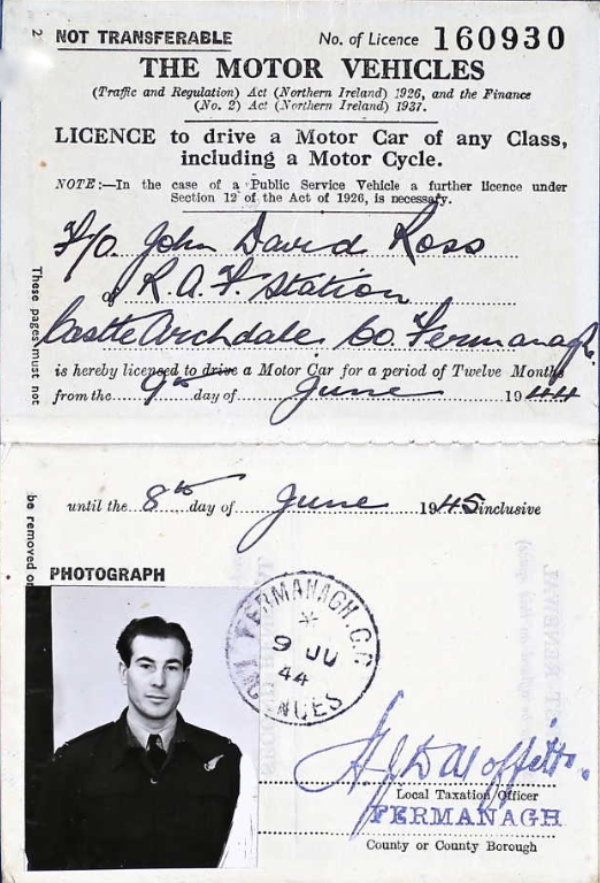 2 NOT TRANSFERABLE No. of Licence 160930
THE MOTOR VEHICLES
(Traffic and Regulation) Act (Northern Ireland) 1926, and the Finance
(No. 2) Act (Northern Ireland) 1937.
LICENCE to drive a Motor Car of any Class,
including a Motor Cycle.
NOTE:—In the case of a Public Service Vehicle a further licence under
Section 12 of the Act of 1926, is necessary.
F/O. John David Ross
of R.A.F. Station
Castle Archdale, Co. Fermanagh.
is hereby licensed to drive a Motor Car for a period of Twelve Months
from the 9th day of June 1944
These pages must not
until the 8th day of June 1945 inclusive
be removed
PHOTOGRAPH
FERMANAGH C.C.
9 JU
44
Local Taxation Officer
FERMANAGH
County or County Borough